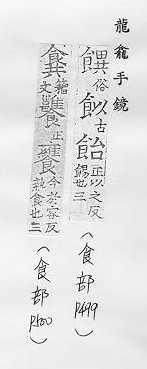 龍龕手鏡
俗
古
飴 正以之反餳也三
(食部 P499)
籀文
正
今於容反熟食也三
(食部 P500)